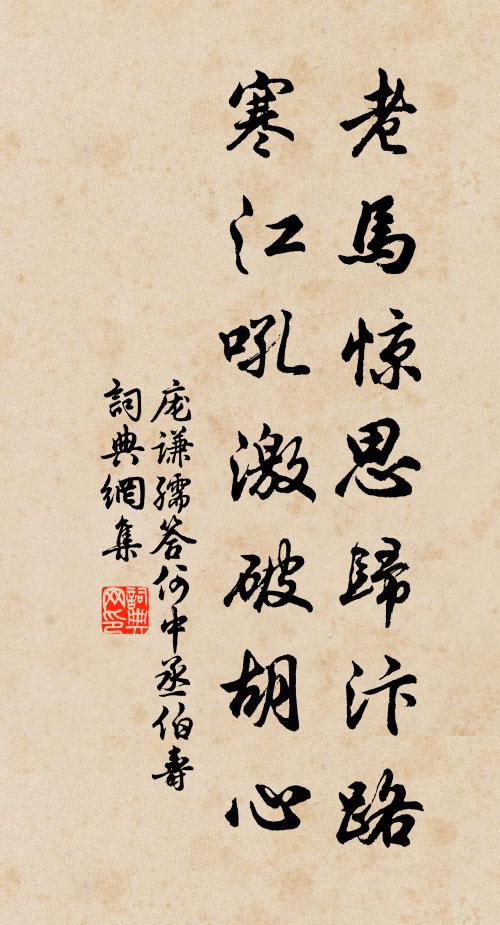 老馬惊思歸汴路
寒江吼激破胡心
庞谦孺答何中丞伯壽
詞典網集
詞典网印